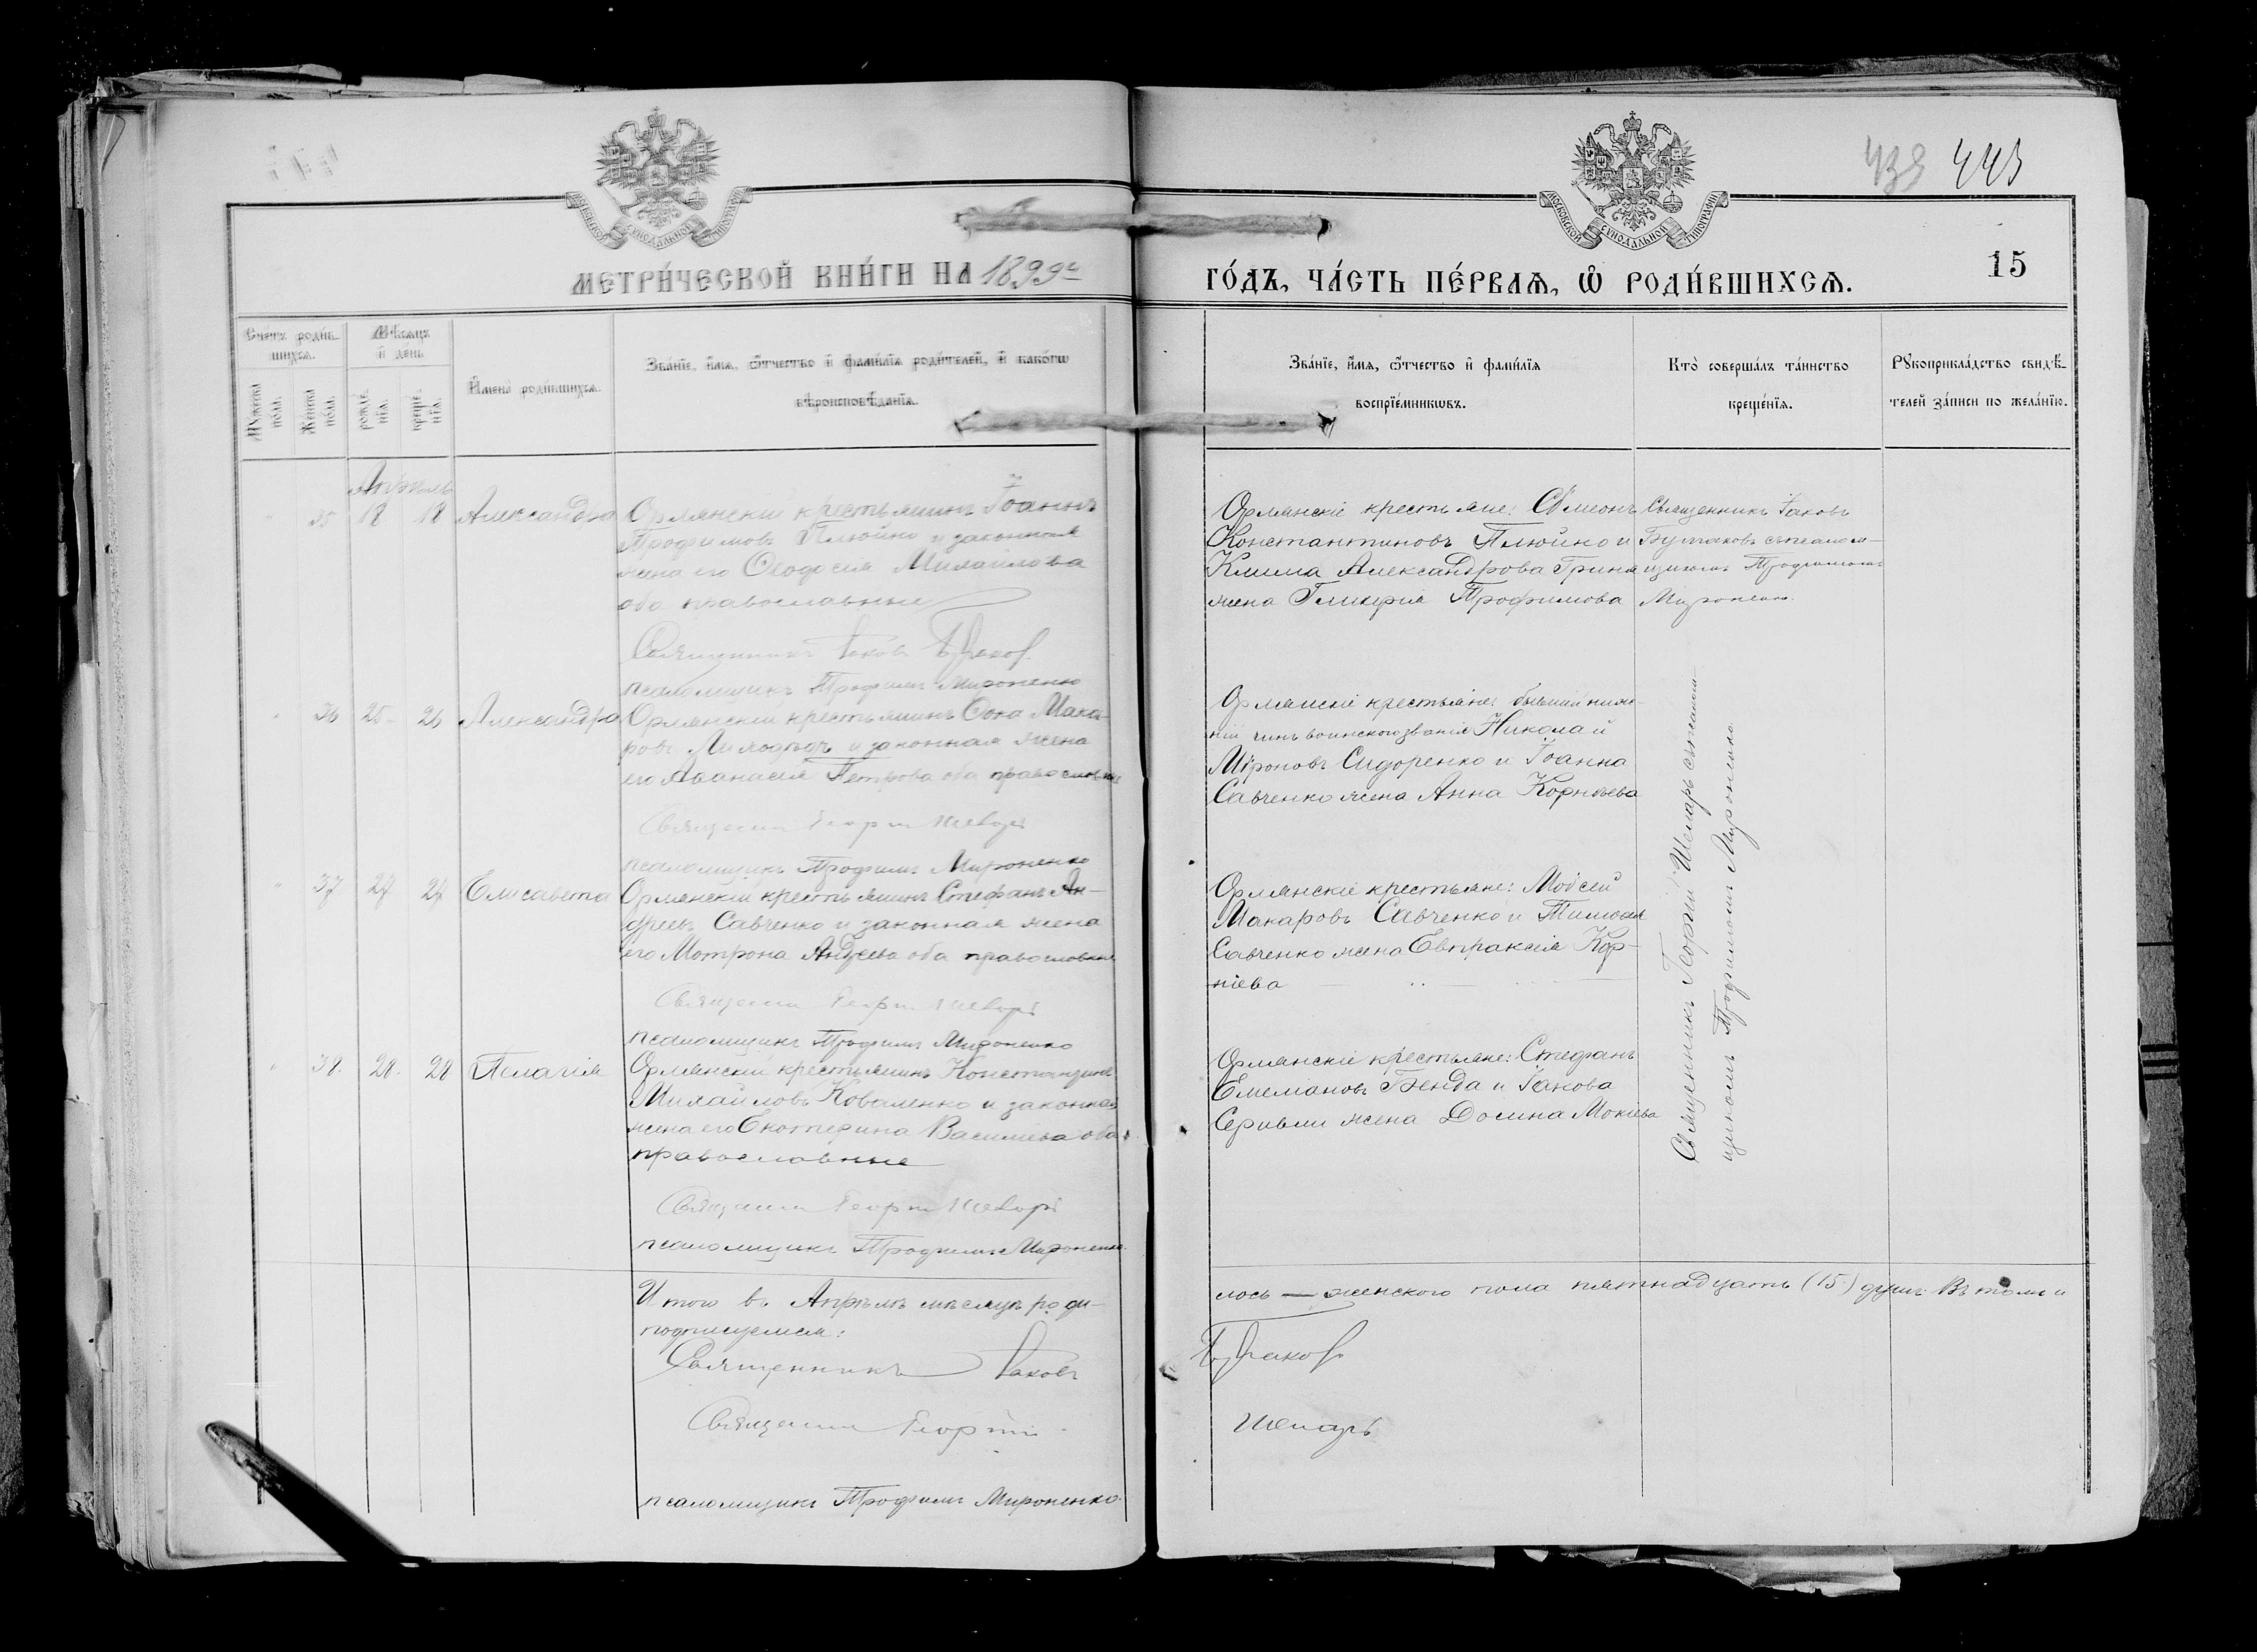 439 443
МОСКОВСКОЙ СѴНОДАЛЬНОЙ ТИПОГРАФІИ
МОСКОВСКОЙ СѴНОДАЛЬНОЙ ТИПОГРАФІИ
МЕТРИ́ЧЕСКОЙ КНИ́ГИ НА 1899й
ГО́ДЪ, ЧА́СТЬ ПЕ́РВАѦ, Ѡ҆ РОДИ́ВШИХСѦ.
15
Счéтъ роди́в-
шихсѧ.
Мꙋ́жеска
пóла.
Жéнска
пóла.
Мѣ́сѧцъ
и҆ день
рождé-
нїѧ.
крещé-
нїѧ.
И҆мена̀ роди́вшихсѧ.
Звáнїе, и҆́мѧ, ѻ҆́тчество и҆ фами́лїѧ роди́телей, и҆ какóгѡ
вѣроисповѣ́данїѧ.
Звáнїе, и҆́мѧ, ѻ҆́тчество и҆ фами́лїѧ
воспрїéмникѡвъ.
Ктò совершáлъ тáинство
крещéнїѧ.
Рꙋкоприклáдство свидѣ́-
телей зáписи по желáнїю.
Апрѣль
35 18 18 Александра
Орлянскій крестьянинъ Іоаннъ
Трофимовъ Плюйко и законная
жена его Ѳеодосія Михайлова
оба православные
Священникъ Іаковъ
псаломщикъ Трофимъ Мироненко
Орлянскіе крестьяне: Сѵмеонъ
Константиновъ Плюйко и
Клима Александрова
жена Гликерія Трофимова
Священникъ Іаковъ
съ псалом-
щикомъ Трофимомъ
Мироненко.
36 25 26 Александра
Орлянскій крестьянинъ Ѳома Мака-
ровъ и законная жена
его Аѳанасія Петрова оба православные
Священникъ Георгій Шеларь
псаломщикъ Трофимъ Мироненко
Орлянскіе крестьяне: бывшій ниж-
ній чинъ воинскаго званія Николай
Мироновъ Сидоренко и Іоанна
Савченко жена Анна Корнѣева
37 27 27 Елисавета
Орлянскій крестьянинъ Стефанъ Ан-
дреевъ Савченко и законная жена
его Мотрона Андреева оба православные
Священникъ Георгій Шеларь
псаломщикъ Трофимъ Мироненко
Орлянскіе крестьяне: Моѵсей
Макаровъ Савченко и
Савченко жена Евпраксія Кор-
ніева
38. 28. 28 Пелагія
Орлянскій крестьянинъ Константинъ
Михайловъ Коваленко и законная
жена его Екатерина Васильева оба
православные
Священникъ Георгій Шеларь
псаломщикъ Трофимъ Мироненко.
Орлянскіе крестьяне: Стефанъ
Емельяновъ Бенда и Іакова
жена Домна Мокіева
Священникъ Георгій Шеларь съ псалом-
щикомъ Трофимомъ Мироненко
Итого въ Апрѣлѣ мѣсяцѣ роди-
лось — женскаго пола пятнадцать (15) душъ. Въ томъ и
подписуемся:
Священникъ Іаковъ
Священникъ Георгій
Шеларь
псаломщикъ Трофимъ Мироненко.